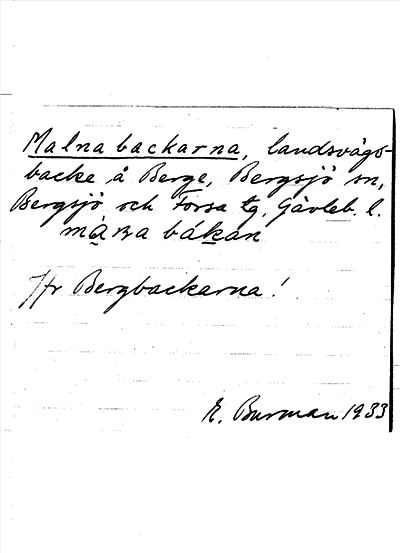 Malnabackarna, landsvägs-
backe å Berge, Bergsjö sn,
Bergsjö och Forsa tg. Gävleb. l.
bákan
Jfr Bergbackarna!
E. Burman 1933